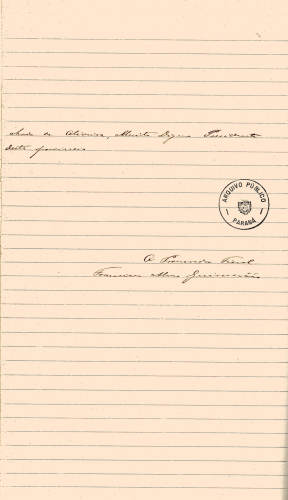 de Oliveira, Muito Digno Presidente
desta provincia
ARQUIVO PÚBLICO
PARANÁ
O Procurador Fiscal
Francisco Alves Guimarães